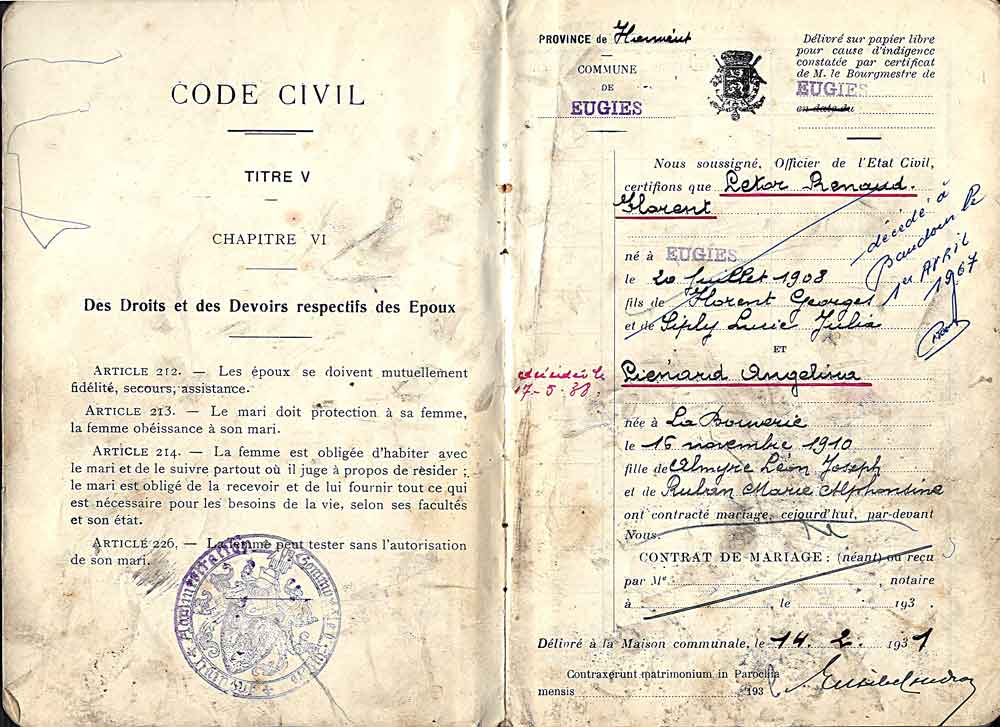 CODE CIVIL
TITRE V
CHAPITRE VI
Des Droits et des Devoirs respectifs des Epoux
ARTICLE 212. — Les époux se doivent mutuellement
fidélité, secours, assistance.
ARTICLE 213. — Le mari doit protection à sa femme,
la femme obéissance à son mari.
ARTICLE 214. — La femme est obligée d'habiter avec
le mari et de le suivre partout où il juge à propos de résider ;
le mari est obligé de la recevoir et de lui fournir tout ce qui
est nécessaire pour les besoins de la vie, selon ses facultés
et son état.
ARTICLE 226. — La femme peut tester sans l'autorisation
de son mari.
PROVINCE de Hainaut
COMMUNE
DE
EUGIES
Délivré sur papier libre
pour cause d'indigence
constatée par certificat
de M. le Bourgmestre de
EUGIES
en date du
Nous soussigné, Officier de l'Etat Civil,
certifions que Letor Renaud
Florent
né à EUGIES
le 20 Juillet 1908
fils de Florent Georges
et de Siply Lucie Julia
décédé à
Baudour le
1er AVRIL
1967
ET
décédée le
17-5-88.
Liénard Angelina
née à La Bouverie
le 16 novembre 1910
fille de Almyre Léon Joseph
et de Ruban Marie Alphonsine
ont contracté mariage, cejourd'hui, par-devant
Nous.
CONTRAT DE MARIAGE : (néant) ou reçu
par Me , notaire
à , le 193 .
Délivré à la Maison communale, le 14. 2. 1931
Contraxerunt matrimonium in Parochia
mensis 193